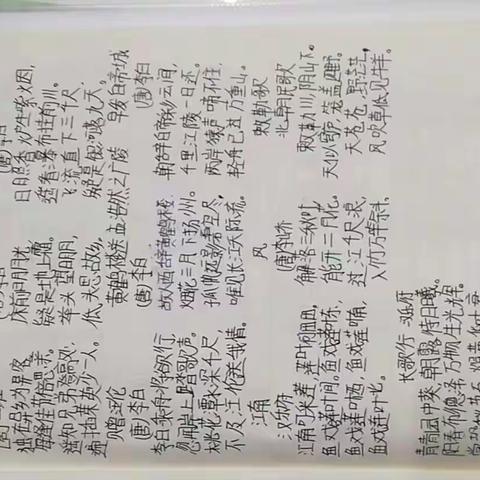 独在异乡为异客,
每逢佳节倍思亲。
遍插茱萸少一人。
赠汪伦
(唐)李白
李白乘舟将欲行,
忽闻岸上踏歌声。
桃花潭水深千尺,
不及汪伦送我情。
江南
汉乐府
江南可采莲,莲叶何田田。
鱼戏莲叶间。鱼戏莲叶东,
鱼戏莲叶西,鱼戏莲叶南,
鱼戏莲叶北。
长歌行 汉乐府
青青园中葵,朝露待日晞。
阳春布德泽,万物生光辉。
床前明月光,
疑是地上霜。
举头望明月,
低头思故乡。
黄鹤楼送孟浩然之广陵
(唐)李白
故人西辞黄鹤楼,
烟花三月下扬州。
孤帆远影碧空尽,
唯见长江天际流。
风
(唐)李峤
解落三秋叶,
能开二月花。
过江千尺浪,
入竹万竿斜。
(唐)李白
日照香炉生紫烟,
遥看瀑布挂前川。
飞流直下三千尺,
疑是银河落九天。
早发白帝城
(唐)李白
朝辞白帝彩云间,
千里江陵一日还。
两岸猿声啼不住,
轻舟已过万重山。
敕勒歌
北朝民歌
敕勒川,阴山下。
天似穹庐,笼盖四野。
天苍苍,野茫茫,
风吹草低见牛羊。